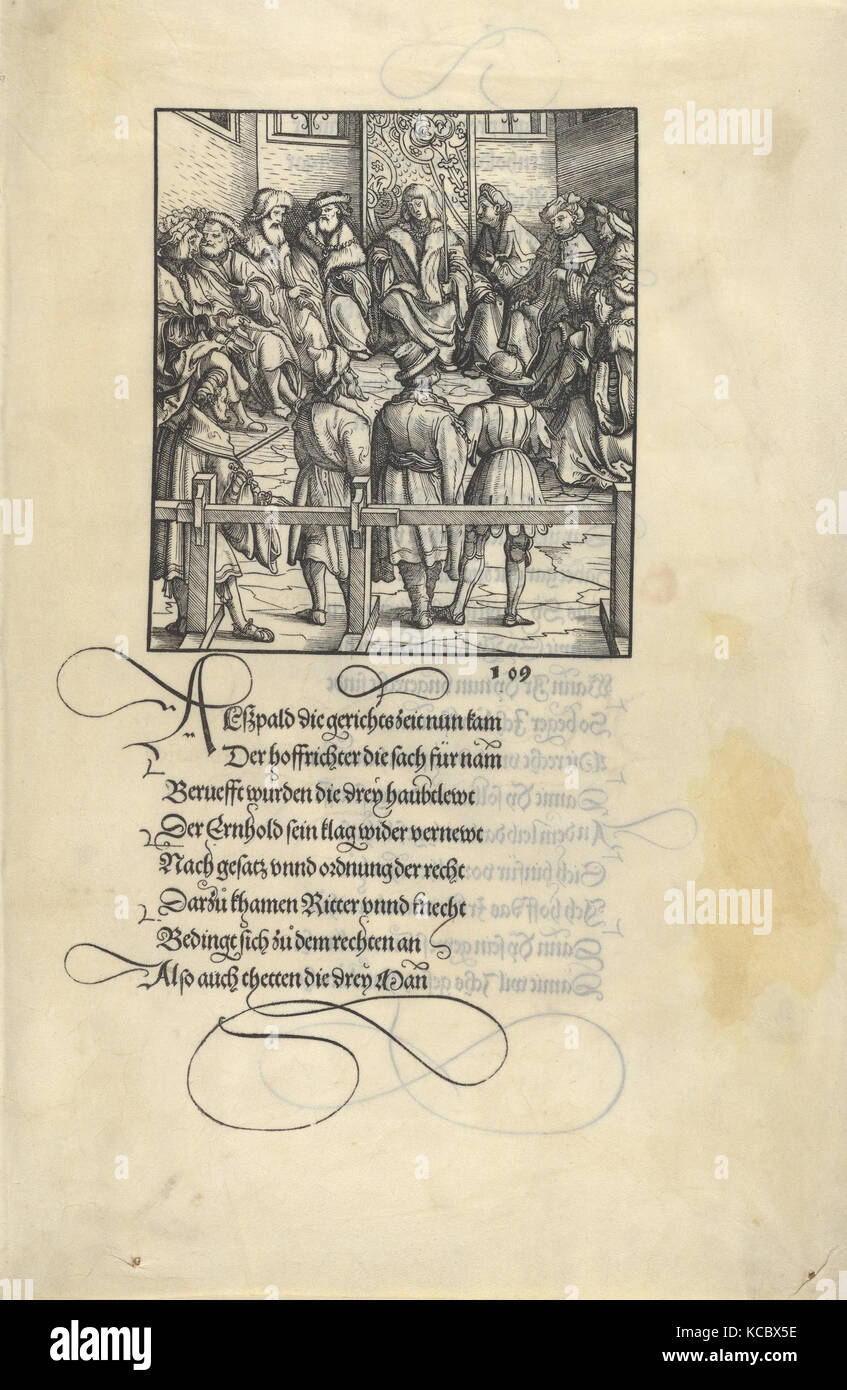 109
ALſzpald die gerichtszeit nun kam
Der hoffrichter die sach für nām
Beruefft wurden die drey haubtlewt
Der Ernhold sein klag wider vernewt
Nach gesatz vnnd ordnung der recht
Darzů khamen Ritter vnnd knecht
Bedingt sich zů dem rechten an
Also auch thetten die drey Man̄
alamy
Image ID: KCBX5E
www.alamy.com